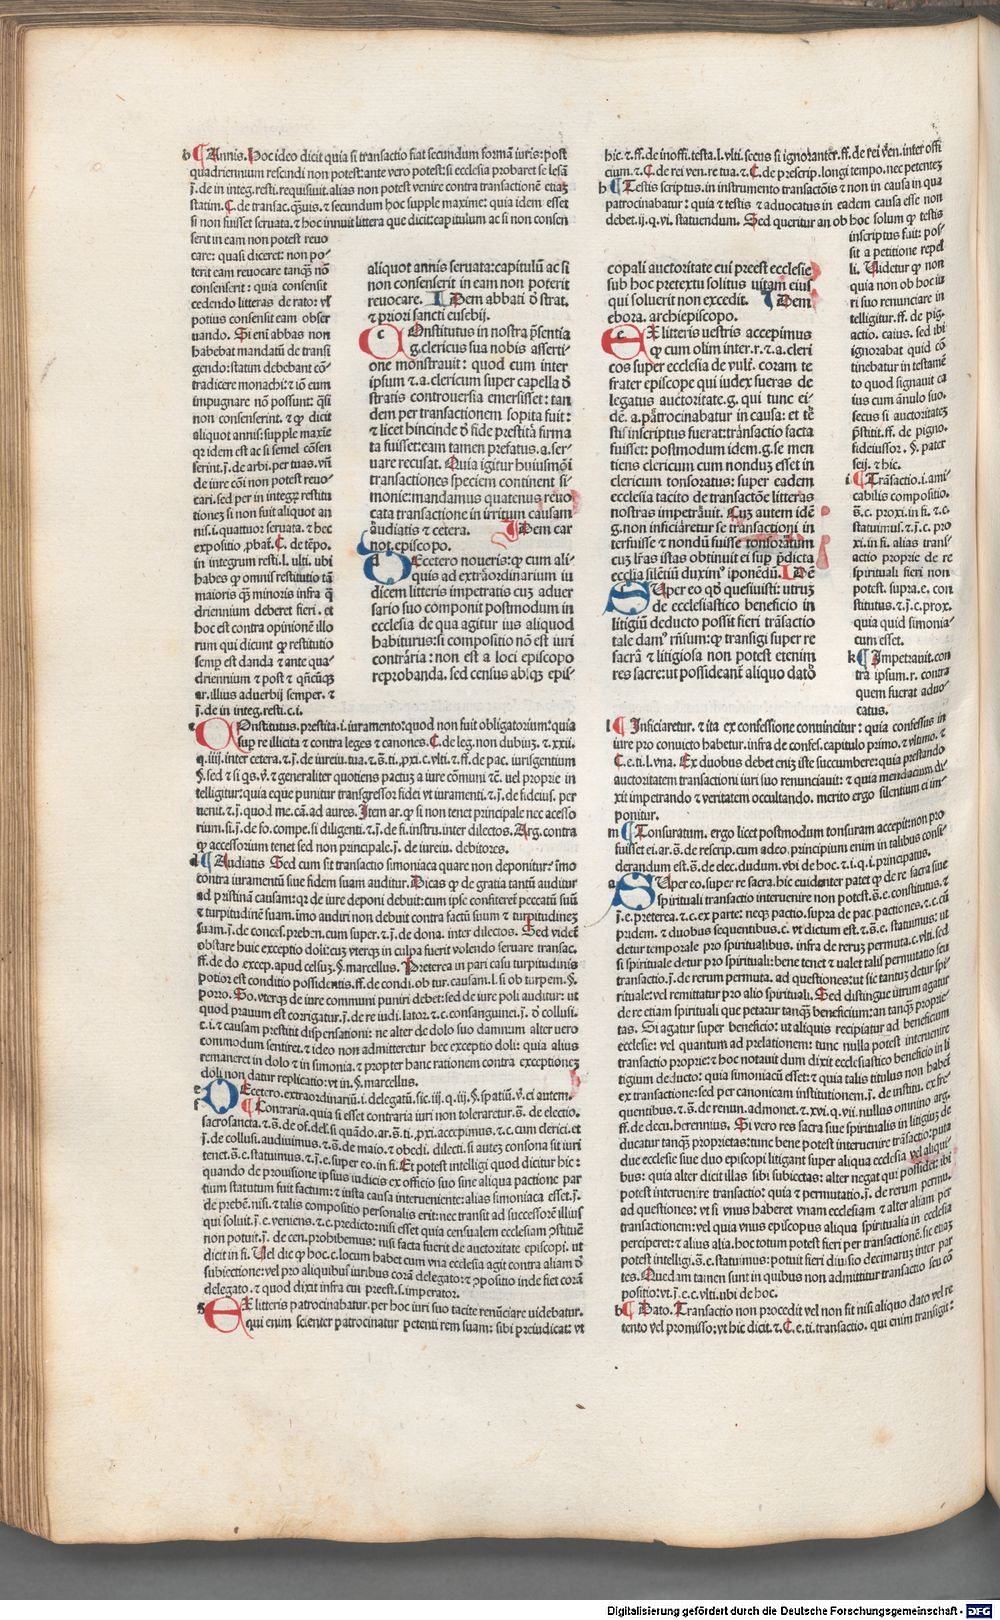 b Annis. Hoc ideo dicit quia si transactio fiat secundum formā iuris: post
quadriennium rescindi non potest: ante vero potest: si ecclesia probaret se lesā
j̄. de in integ. resti. requisiuit. alias non potest venire contra transactionē etiaꝫ
statim. C. de transac. q̄uis. ⁊ secundum hoc supple maxime: quia idem esset
si non fuisset seruata. ⁊ hoc innuit littera que dicit: capitulum ac si non consen
serit in eam non potest reuo
care: quasi diceret: non po-
terit eam reuocare tanqꝫ nō
consensert: quia consensit
cedendo litteras de rato: vl
potius consensit eam obser
uando. Si eni abbas non
habebat mandatū de transi
gendo: statim debebant cō-
tradicere monachi: ⁊ iō eum
impugnare nō possunt: q̄si
non consenserint. ⁊ ꝙ dicit
aliquot annis: supple maxīe
qꝛ idem est ac si semel cōsen
serint. j̄. de arbi. per tuas. vn̄
de iure cōi non potest reuo
cari. sed per in integꝝ restitu
tioneꝫ si non fuit aliquot an
nis. i. quattuor seruata. ⁊ hec
expositio ꝓbat̄. C. de tēpo.
in integrum resti. l. vlti. ubi
habes ꝙ omnis restitutio tā
maioris qꝫ minoris infra q̄
driennium deberet fieri. et
hoc est contra opinionē illo
rum qui dicunt ꝙ restitutio
semꝑ est danda ⁊ ante qua-
driennium ⁊ post ⁊ qn̄cūqꝫ
ar. illius aduerbij semper. ⁊
j̄. de in integ. resti. c. i.
aliquot annis seruata: capitulū ac si
non consenserit in eam non poterit
reuocare. Idem abbati ō strat.
⁊ priori sancti eusebij.
c Onstitutus in nostra p̄sentia
g. clericus sua nobis asserti-
one monstrauit: quod cum inter
ipsum ⁊. a. clericum super capella ō
stratis controuersia emersisset: tan
dem per transactionem sopita fuit:
⁊ licet hincinde ō fide prestita firma
ta fuisset: eam tamen prefatus. a. ser-
uare recusat. Quia igitur huiusmōi
transactiones speciem continent si-
monie: mandamus quatenus reuo
cata transactione in irritum causam
audiatis ⁊ cetera. Idem car
not. episcopo.
d Ecetero noueris: ꝙ cum ali-
quis ad extraordinarium iu
dicem litteris impetratis cuꝫ aduer
sario suo componit postmodum in
ecclesia de qua agitur ius aliquod
habiturus: si compositio nō est iuri
contraria: non est a loci episcopo
reprobanda. sed census absqꝫ epis-
c Onstitutus. prestita. i. iuramento: quod non fuit obligatorium: quia
super re illicita ⁊ contra leges ⁊ canones. C. de leg. non dubiuꝫ. ⁊. xxii.
q. iiii. inter cetera. ⁊. j̄. de iureiu. tua. ⁊. s̄. ti. ꝓxi. c. vlti. ⁊. ff. de pac. iurisgentium
§. sed ⁊ si qs. v̄. ⁊ generaliter quotiens pactuꝫ a iure cōmuni ⁊c̄. uel proprie in
telligitur: quia eque punitur transgressor fidei vt iuramenti. ⁊. j̄. de fideius. per
uenit. ⁊. j̄. quod me. cā. ad aures. Item ar. ꝙ si non tenet principale nec accesso
rium. si. j̄. de fo. compe. si diligenti. ⁊. j̄. de fi. instru. inter dilectos. Arg. contra
ꝙ accessorium tenet sed non principale. j̄. de iureiu. debitores.
d Audiatis. Sed cum sit transactio simoniaca quare non deponitur? īmo
contra iuramentū siue fidem suam auditur. Dicas ꝙ de gratia tantū auditur
ad pristinā causam: qꝛ de iure deponi debuit: cum ipse confiteret̄ peccatū suū
⁊ turpitudinē suam. īmo audiri non debuit contra factū suum ⁊ turpitudineꝫ
suam. j̄. de conces. prebēn. cum super. ⁊. j̄. de dona. inter dilectos. Sed videt̄
obstare huic exceptio doli: cuꝫ vterqꝫ in culpa fuerit volendo seruare transac.
ff. de do. excep. apud celsuꝫ. §. marcellus. Preterea in pari casu turpitudinis
potior est conditio possidentis. ff. de condi. ob tur. causam. l. si ob turpem. §.
porro. So. vterqꝫ de iure communi puniri debet: sed de iure poli auditur: ut
quod prauum est corrigatur. j̄. de re iudi. lator. ⁊. c. consanguinei. j̄. ō collusi.
c. i. ⁊ causam prestitit dispensationi: ne alter de dolo suo damnum alter vero
commodum sentiret. ⁊ ideo non admitteretur hec exceptio doli: quia alius
remaneret in dolo ⁊ in simonia. ⁊ propter hanc rationem contra exceptioneꝫ
doli non datur replicatio: vt in. §. marcellus.
e D Ecetero. extraordinariū. i. delegatū. sic. iii. q. iii. §. spatiū. v̄. ei autem.
f Contraria. quia si esset contraria iuri non toleraretur. s̄. de electio.
sacrosancta. ⁊. s̄. de of. del. si quādo. ar. s̄. ti. ꝓxi. accepimus. ⁊. c. cum clerici. et
j̄. de collusi. audiuimus. ⁊. s̄. de maio. ⁊ obedi. dilecti. si auteꝫ consona sit iuri
tenet. s̄. e. statuimus. ⁊. j̄. e. super eo. in fi. Et potest intelligi quod dicitur hic:
quando de prouisione ipsius iudicis ex officio suo sine aliqua pactione par
tium statutum fuit factum: ⁊ iusta causa interueniente: alias simoniaca esset. j̄.
de prebē. nisi. ⁊ talis compositio personalis erit: nec transit ad successorē illius
qui soluit. j̄. e. veniens. ⁊ c. predicto: nisi esset quia censualem ecclesiam ꝯstituē
non potuit. j̄. de cen. prohibemus: nisi facta fuerit de auctoritate episcopi. ut
dicit in fi. Vel dic ꝙ hoc. c. locum habet cum vna ecclesia agit contra aliam ō
subiectione: vel pro aliquibus iuribus corā delegato: ⁊ ꝯpositio inde fiet corā
delegato. ⁊ quod dixit infra cui preest. s. imperator.
g E X litteris patrocinabatur. per hoc iuri suo tacite renūciare uidebatur.
qui enim scienter patrocinatur petenti rem suam: sibi preiudicat: vt
hic. ⁊. ff. de inoffi. testa. l. vlti. secus si ignoranter. ff. de rei ven. inter offi
cium. ⁊. C. de rei ven. re tua. ⁊. C. de prescrip. longi tempo. nec petenteꝫ
h Testis scriptus. in instrumento transactōis ⁊ non in causa in qua
patrocinabatur: quia ⁊ testis ⁊ aduocatus in eadem causa esse non
debet. iij. q. vi. statuendum. Sed queritur an ob hoc solum ꝙ testis
inscriptus fuit: pos-
sit a petitione repel
li. Videtur ꝙ non
quia non ob hoc iu
ri suo renunciare in
telligitur. ff. de pig-
actio. caius. sed ibi
ignorabat quid cō
tinebatur in testamē
to quod signauit ca
ius cum ānulo suo.
secus si auctoritateꝫ
p̄stitit. ff. de pigno.
fideiussor. §. pater
seij. ⁊ hic.
i Trāsactio. i. ami
cabilis compositio.
s̄. c. proxi. in fi. ⁊. c.
statuimus. ⁊. j̄. c. pro
xi. in fi. alias trans-
actio proprie de re
spirituali fieri non
potest. supra. e. con
stitutus. ⁊. j̄. c. prox.
quia quid simonia-
cum esset.
k Impetrauit. con
tra ipsum. r. contra
quem fuerat aduo-
catus.
copali auctoritate cui preest ecclesie
sub hoc pretextu solitus uitam eius
qui soluerit non excedit. Idem
ebora. archiepiscopo.
e X litteris uestris accepimus
ꝙ cum olim inter. r. ⁊. a. cleri
cos super ecclesia de vult̄. coram te
frater episcope qui iudex fueras de
legatus auctoritate. g. qui tunc ei-
dē. a. patrocinabatur in causa: et tē
stis inscriptus fuerat: transactio facta
fuisset: postmodum idem. g. se men
tiens clericum cum nonduꝫ esset in
clericum tonsoratus: super eadem
ecclesia tacito de transactōe litteras
nostras impetrauit. Cuꝫ autem idē
g. non inficiaretur se transactioni in
terfuisse ⁊ nondū fuisse tonsoratum
cuꝫ lr̄as istas obtinuit ei suꝑ p̄dicta
ecclīa silētiū duximꝰ īponēdū. Idē
S Vper eo qō quesiuisti: utruꝫ
de ecclesiastico beneficio in
litigiū deducto possit fieri trāsactio
tale damꝰ rn̄sum: ꝙ transigi super re
sacra ⁊ litigiosa non potest etenim
res sacre: ut possideant̄ aliquo datō
l Inficiaretur. ⁊ ita ex confessione conuincitur: quia confessus in
iure pro conuicto habetur. infra de confes. capitulo primo. ⁊ vltimo. ⁊
C. e. ti. l. vna. Ex duobus debet eniꝫ iste succumbere: quia prestando
auctoritatem transactioni iuri suo renunciauit: ⁊ quia mendacium di-
xit impetrando ⁊ veritatem occultando. merito ergo silentium ei im-
ponitur.
m Tonsuratum. ergo licet postmodum tonsuram acceperit: non pro
fuisset ei. ar. s̄. de rescrip. cum adeo. principium enim in talibus consi-
derandum est. s̄. de elec. dudum. vbi de hoc. ⁊. i. q. i. principatus.
a S Vper eo. super re sacra. hic euidenter patet ꝙ de re sacra siue
spirituali transactio interuenire non potest. s̄. e. constitutus. ⁊
j̄. e. preterea. ⁊. c. ex parte: neqꝫ pactio. supra de pac. pactiones. ⁊. c. cū
pridem. ⁊ duobus sequentibus. c. vt dictum est. ⁊. s̄. e. statuimus: ut
detur temporale pro spiritualibus. infra de reruꝫ permuta. c. vlti. sed
si spirituale detur pro spirituali: bene tenet ⁊ ualet talis permutatio seu
transactio. j̄. de rerum permuta. ad questiones: ut sic tantuꝫ detur spi-
rituale: vel remittatur pro alio spirituali. Sed distingue utrum agatur
de re etiam spirituali que petatur tanqꝫ beneficium: an tanqꝫ proprie-
tas. Si agatur super beneficio: ut aliquis recipiatur ad beneficium
ecclesie: vel quantum ad prelationem: tunc nulla potest interuenire
transactio proprie: ⁊ hoc notauit dum dixit ecclesiastico beneficio in li
tigium deducto: quia simoniacū esset: ⁊ quia talis titulus non habet
ex transactione: sed per canonicam institutionem. j̄. de institu. ex fre-
quentibus. ⁊. s̄. de renun. admonet. ⁊. xvi. q. vii. nullus omnino arg.
ff. de decu. herennius. Si vero res sacra siue spiritualis in litigiuꝫ de
ducatur tanqꝫ proprietas: tunc bene potest interuenire trāsactio: puta
due ecclesie siue duo episcopi litigant super aliqua ecclesia vel aliqui-
bus: quia alter dicit illas sibi subiectas: alter negat qui possidet: ibi
potest interuenire transactio: quia ⁊ permutatio. j̄. de rerum permu.
ad questiones: vt si vnus haberet vnam ecclesiam ⁊ alter aliam per
transactionem: vel quia vnus episcopus aliqua spiritualia in ecclesia
perciperet: ⁊ alius alia. hoc totum potest fieri per transactionē. sic etiaꝫ
potest intelligi. s̄. e. statuimus: potuit fieri diuisio decimaruꝫ inter par
tes. Quedam tamen sunt in quibus non admittitur transactio seu cō
positio: vt. j̄. e. c. vlti. ubi de hoc.
b Dato. Transactio non procedit vel non fit nisi aliquo dato vel re
tento vel promisso: vt hic dicit. ⁊. C. e. ti. transactio. qui enim transigit:
Digitalisierung gefördert durch die Deutsche Forschungsgemeinschaft - DFG